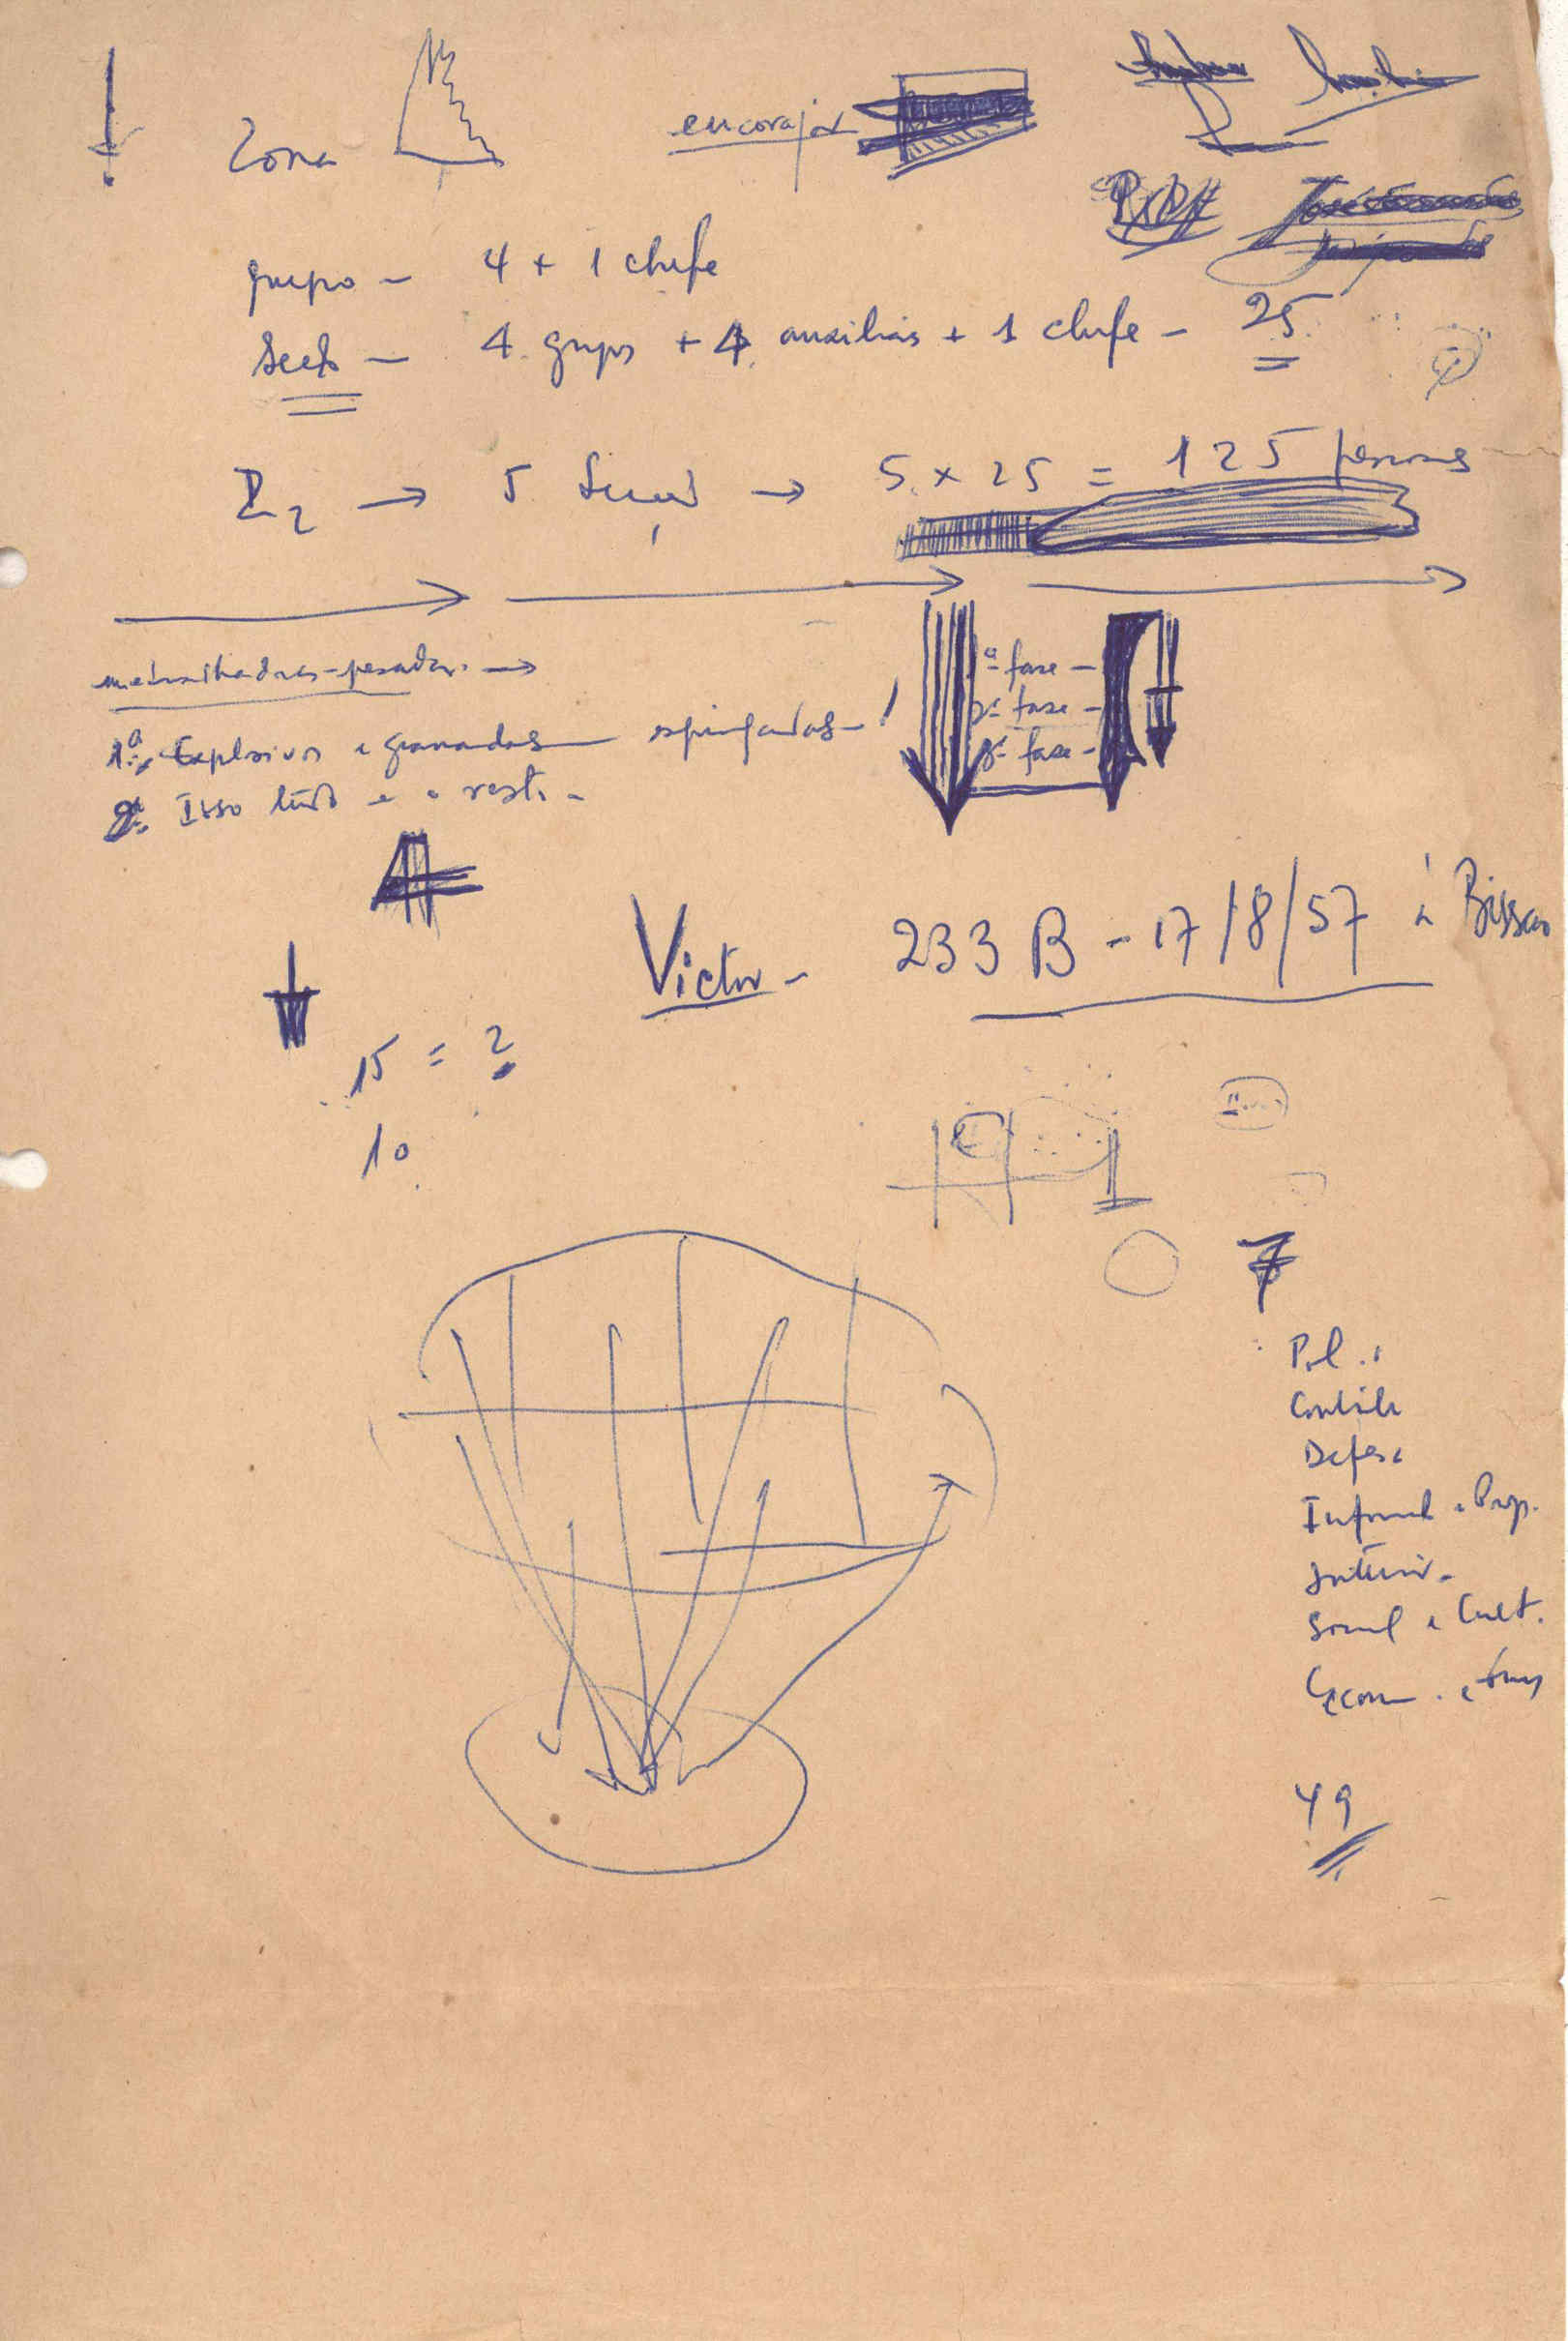 Zona
encorajar
grupo - 4 + 1 chefe
4 grupos + 4 auxiliares + 1 chefe - 25
Z2 → 5 → 5 × 25 = 125 pessoas
metralhadoras-pesadas. →
1ª fase -
2ª fase -
3ª fase -
1ª Explosivos e granadas espingardas - !
2ª Isso tudo e o resto -
Victor - 233 B - 17/8/57 à Bissau
15 = 2
10
7
Pol.
Defesa
Inform e Prop.
Interior -
Social e Cult.
Econ. e
49